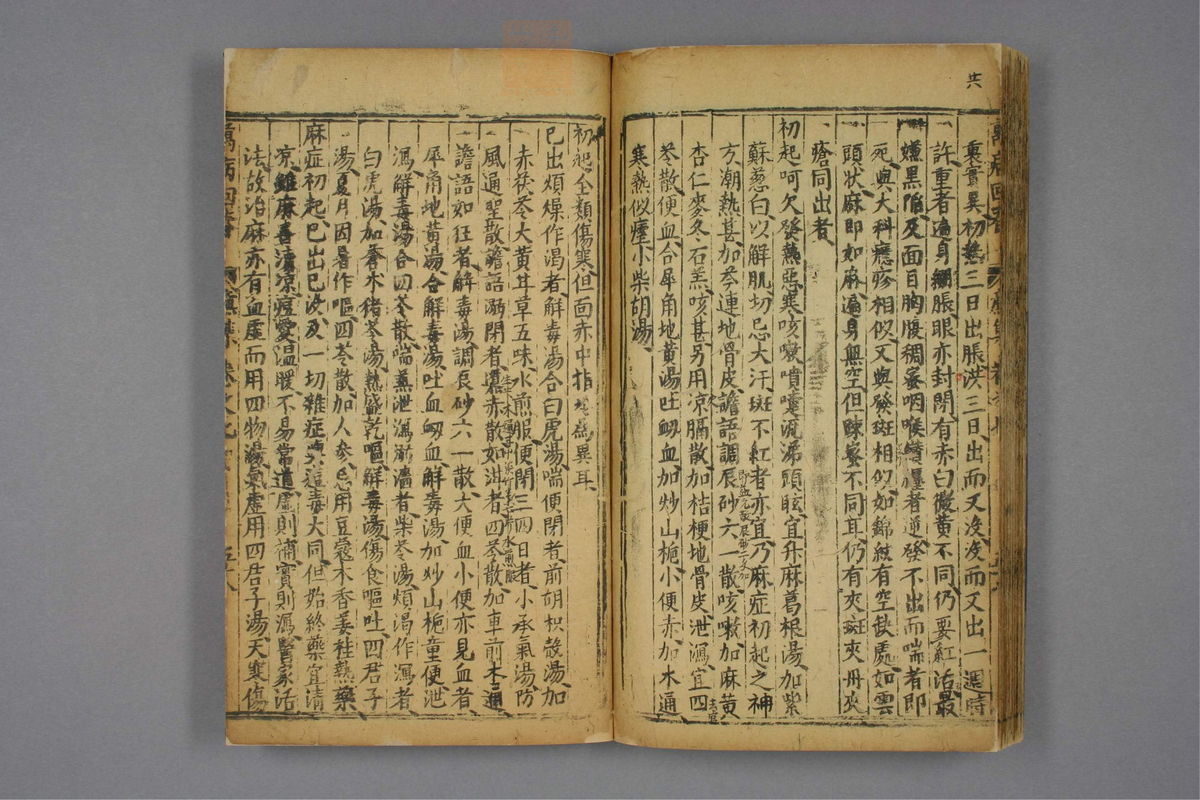 共
裏實異初熱三日出脹洪三日出而又沒沒而又出一週時
許重者遍身綳脹眼亦封閉有赤白微黃不同仍要紅活最
嫌黑陷及面目胸膈稠密咽喉纏者逆發不出而喘者即
死與大科癮疹相似又與發斑相似如錦紋有空缺處如雲
頭狀麻即如麻遍身無空但踈密不同耳仍有夾斑夾丹夾
瘄同出者
初起呵欠發熱惡寒咳嗽噴嚏流涕頭眩宜升麻葛根湯加紫
蘇葱白以解肌切忌大汗斑不紅者亦宜乃麻症初起之神
方潮熱甚加芩連地骨皮譫語調辰砂六一散咳嗽加麻黃
杏仁麥冬石羔咳甚另用凉膈散加桔梗地骨皮泄瀉宜四
苓散便血合犀角地黃湯吐衂血加炒山梔小便赤加木通
寒熱似瘧小柴胡湯
初起全類傷寒但面赤中指 爲異耳
已出煩燥作渴者解毒湯合白虎湯喘便閉者前胡枳殼湯加
赤茯苓大黃甘草五味水煎服便閉三四日者小承氣湯防
風通聖散譫語溺閉者導赤散如泔者四苓散加車前木通
譫語如狂者解毒湯調辰砂六一散大便血小便亦見血者
犀角地黃湯合解毒湯吐血衂血解毒湯加炒山梔童便泄
瀉解毒湯合四苓散喘兼泄瀉溺濇者柴苓湯煩渴作瀉者
白虎湯加蒼朮猪苓湯熱盛乾嘔解毒湯傷食嘔吐四君子
湯夏月因暑作嘔四苓散加人參忌用豆蔻木香姜桂熱藥
麻症初起已出已沒及一切雜症與痘毒大同但始終藥宜清
凉雖麻喜凊凉痘愛温暖不易常道虛則補實則瀉醫家活
法故治麻亦有血虛而用四物湯氣虛用四君子湯天寒傷
萬病回春